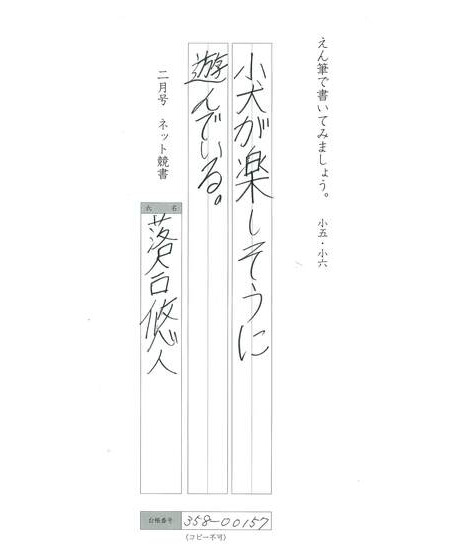 えん筆で書いてみましょう。 小五・小六
小犬が楽しそうに
遊んでいる。
二月号 ネット競書
氏名
落合悠人
台帳番号 358-00157
(コピー不可)